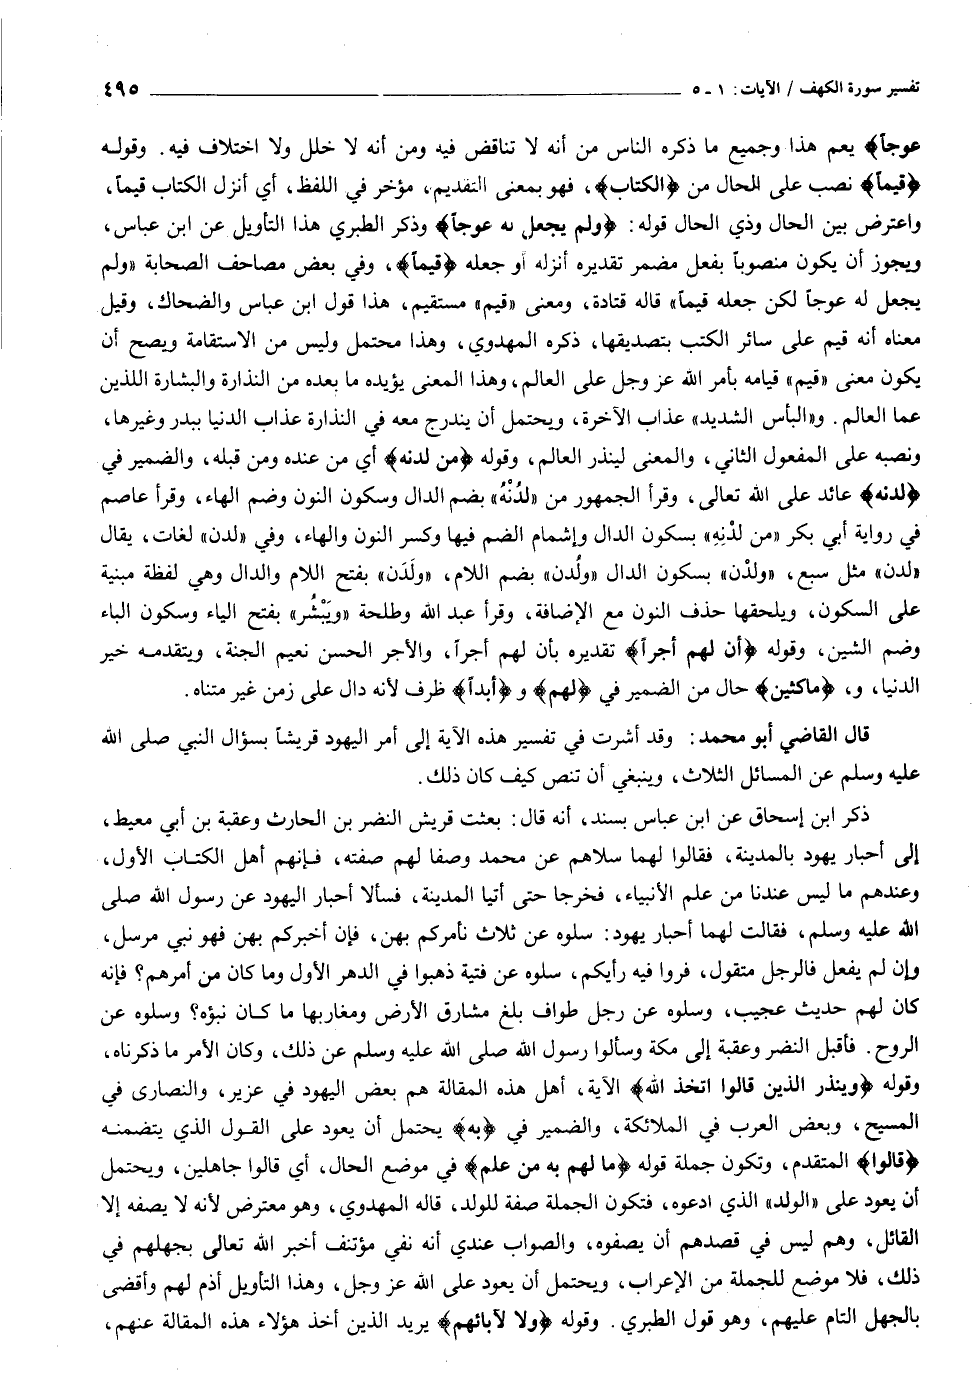 تفسير سورة الكهف / الآيات: ١ - ٥ ٤٩٥
عوجاً﴾ يعم هذا وجميع ما ذكره الناس من أنه لا تناقض فيه ومن أنه لا خلل ولا اختلاف فيه. وقوله
﴿قيماً﴾ نصب على الحال من ﴿الكتاب﴾، فهو بمعنى التقديم، مؤخر في اللفظ، أي أنزل الكتاب قيماً،
واعترض بين الحال وذي الحال قوله: ﴿ولم يجعل له عوجاً﴾ وذكر الطبري هذا التأويل عن ابن عباس،
ويجوز أن يكون منصوباً بفعل مضمر تقديره أنزله أو جعله ﴿قيماً﴾، وفي بعض مصاحف الصحابة «ولم
يجعل له عوجاً لكن جعله قيماً» قاله قتادة، ومعنى «قيم» مستقيم، هذا قول ابن عباس والضحاك، وقيل
معناه أنه قيم على سائر الكتب بتصديقها، ذكره المهدوي، وهذا محتمل وليس من الاستقامة ويصح أن
يكون معنى «قيم» قيامه بأمر الله عز وجل على العالم، وهذا المعنى يؤيده ما بعده من النذارة والبشارة اللذين
عما العالم. و«البأس الشديد» عذاب الآخرة، ويحتمل أن يندرج معه في النذارة عذاب الدنيا ببدر وغيرها،
ونصبه على المفعول الثاني، والمعنى لينذر العالم، وقوله ﴿من لدنه﴾ أي من عنده ومن قبله، والضمير في
﴿لدنه﴾ عائد على الله تعالى، وقرأ الجمهور من «لدُنْهُ» بضم الدال وسكون النون وضم الهاء، وقرأ عاصم
في رواية أبي بكر «من لدْنِهِ» بسكون الدال وإشمام الضم فيها وكسر النون والهاء، وفي «لدن» لغات، يقال
«لدن» مثل سبع، «ولدْن» بسكون الدال «ولُدن» بضم اللام، «ولَدَن» بفتح اللام والدال وهي لفظة مبنية
على السكون، ويلحقها حذف النون مع الإضافة، وقرأ عبد الله وطلحة «ويَبْشُر» بفتح الياء وسكون الباء
وضم الشين، وقوله ﴿أن لهم أجراً﴾ تقديره بأن لهم أجراً، والأجر الحسن نعيم الجنة، ويتقدمه خير
الدنيا، و، ﴿ماكثين﴾ حال من الضمير في ﴿لهم﴾ و﴿أبداً﴾ ظرف لأنه دال على زمن غير متناه.
قال القاضي أبو محمد: وقد أشرت في تفسير هذه الآية إلى أمر اليهود قريشاً بسؤال النبي صلى الله
عليه وسلم عن المسائل الثلاث، وينبغي أن تنص كيف كان ذلك.
ذكر ابن إسحاق عن ابن عباس بسند، أنه قال: بعثت قريش النضر بن الحارث وعقبة بن أبي معيط،
إلى أحبار يهود بالمدينة، فقالوا لهما سلاهم عن محمد وصفا لهم صفته، فإنهم أهل الكتاب الأول،
وعندهم ما ليس عندنا من علم الأنبياء، فخرجا حتى أتيا المدينة، فسألا أحبار اليهود عن رسول الله صلى
الله عليه وسلم، فقالت لهما أحبار يهود: سلوه عن ثلاث نأمركم بهن، فإن أخبركم بهن فهو نبي مرسل،
وإن لم يفعل فالرجل متقول، فروا فيه رأيكم، سلوه عن فتية ذهبوا في الدهر الأول وما كان من أمرهم؟ فإنه
كان لهم حديث عجيب، وسلوه عن رجل طواف بلغ مشارق الأرض ومغاربها ما كان نبؤه؟ وسلوه عن
الروح. فأقبل النضر وعقبة إلى مكة وسألوا رسول الله صلى الله عليه وسلم عن ذلك، وكان الأمر ما ذكرناه،
وقوله ﴿وينذر الذين قالوا اتخذ الله﴾ الآية، أهل هذه المقالة هم بعض اليهود في عزير، والنصارى في
المسيح، وبعض العرب في الملائكة، والضمير في ﴿به﴾ يحتمل أن يعود على القول الذي يتضمنه
﴿قالوا﴾ المتقدم، وتكون جملة قوله ﴿ما لهم به من علم﴾ في موضع الحال، أي قالوا جاهلين، ويحتمل
أن يعود على «الولد» الذي ادعوه، فتكون الجملة صفة للولد، قاله المهدوي، وهو معترض لأنه لا يصفه إلا
القائل، وهم ليس في قصدهم أن يصفوه، والصواب عندي أنه نفي مؤتنف أخبر الله تعالى بجهلهم في
ذلك، فلا موضع للجملة من الإعراب، ويحتمل أن يعود على الله عز وجل، وهذا التأويل أذم لهم وأقضى
بالجهل التام عليهم، وهو قول الطبري. وقوله ﴿ولا لآبائهم﴾ يريد الذين أخذ هؤلاء هذه المقالة عنهم،